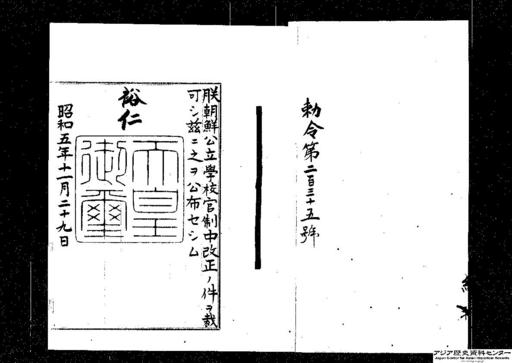 勅令第二百三十五號
朕朝鮮公立學校官制中改正ノ件ヲ裁
可シ茲ニ之ヲ公布セシム
裕仁
天皇
御璽
昭和五年十一月二十九日
アジア歴史資料センター
Japan Center for Asian Historical Records